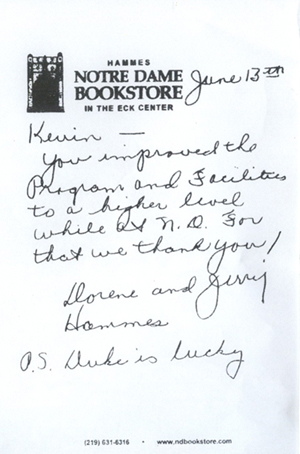 HAMMES
NOTRE DAME
BOOKSTORE
IN THE ECK CENTER
June 13th
Kevin —
You improved the
Program and Facilities
to a higher level
while at N.D. For
that we thank you!
Dorene and Jerry
Hammes
P.S. Duke is lucky
(219) 631-6316 • www.ndbookstore.com